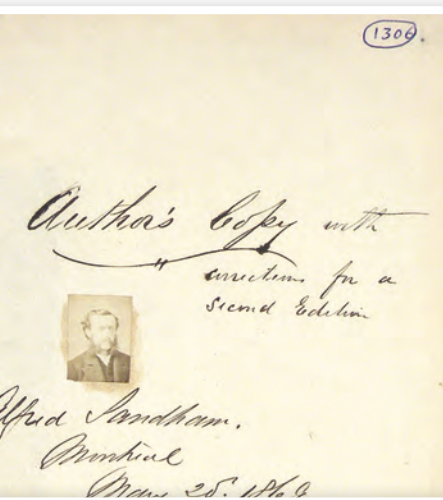 1306.
Author's Copy with
corrections for a
Second Edition
Alfred Sandham.
Montreal
May 25. 1869